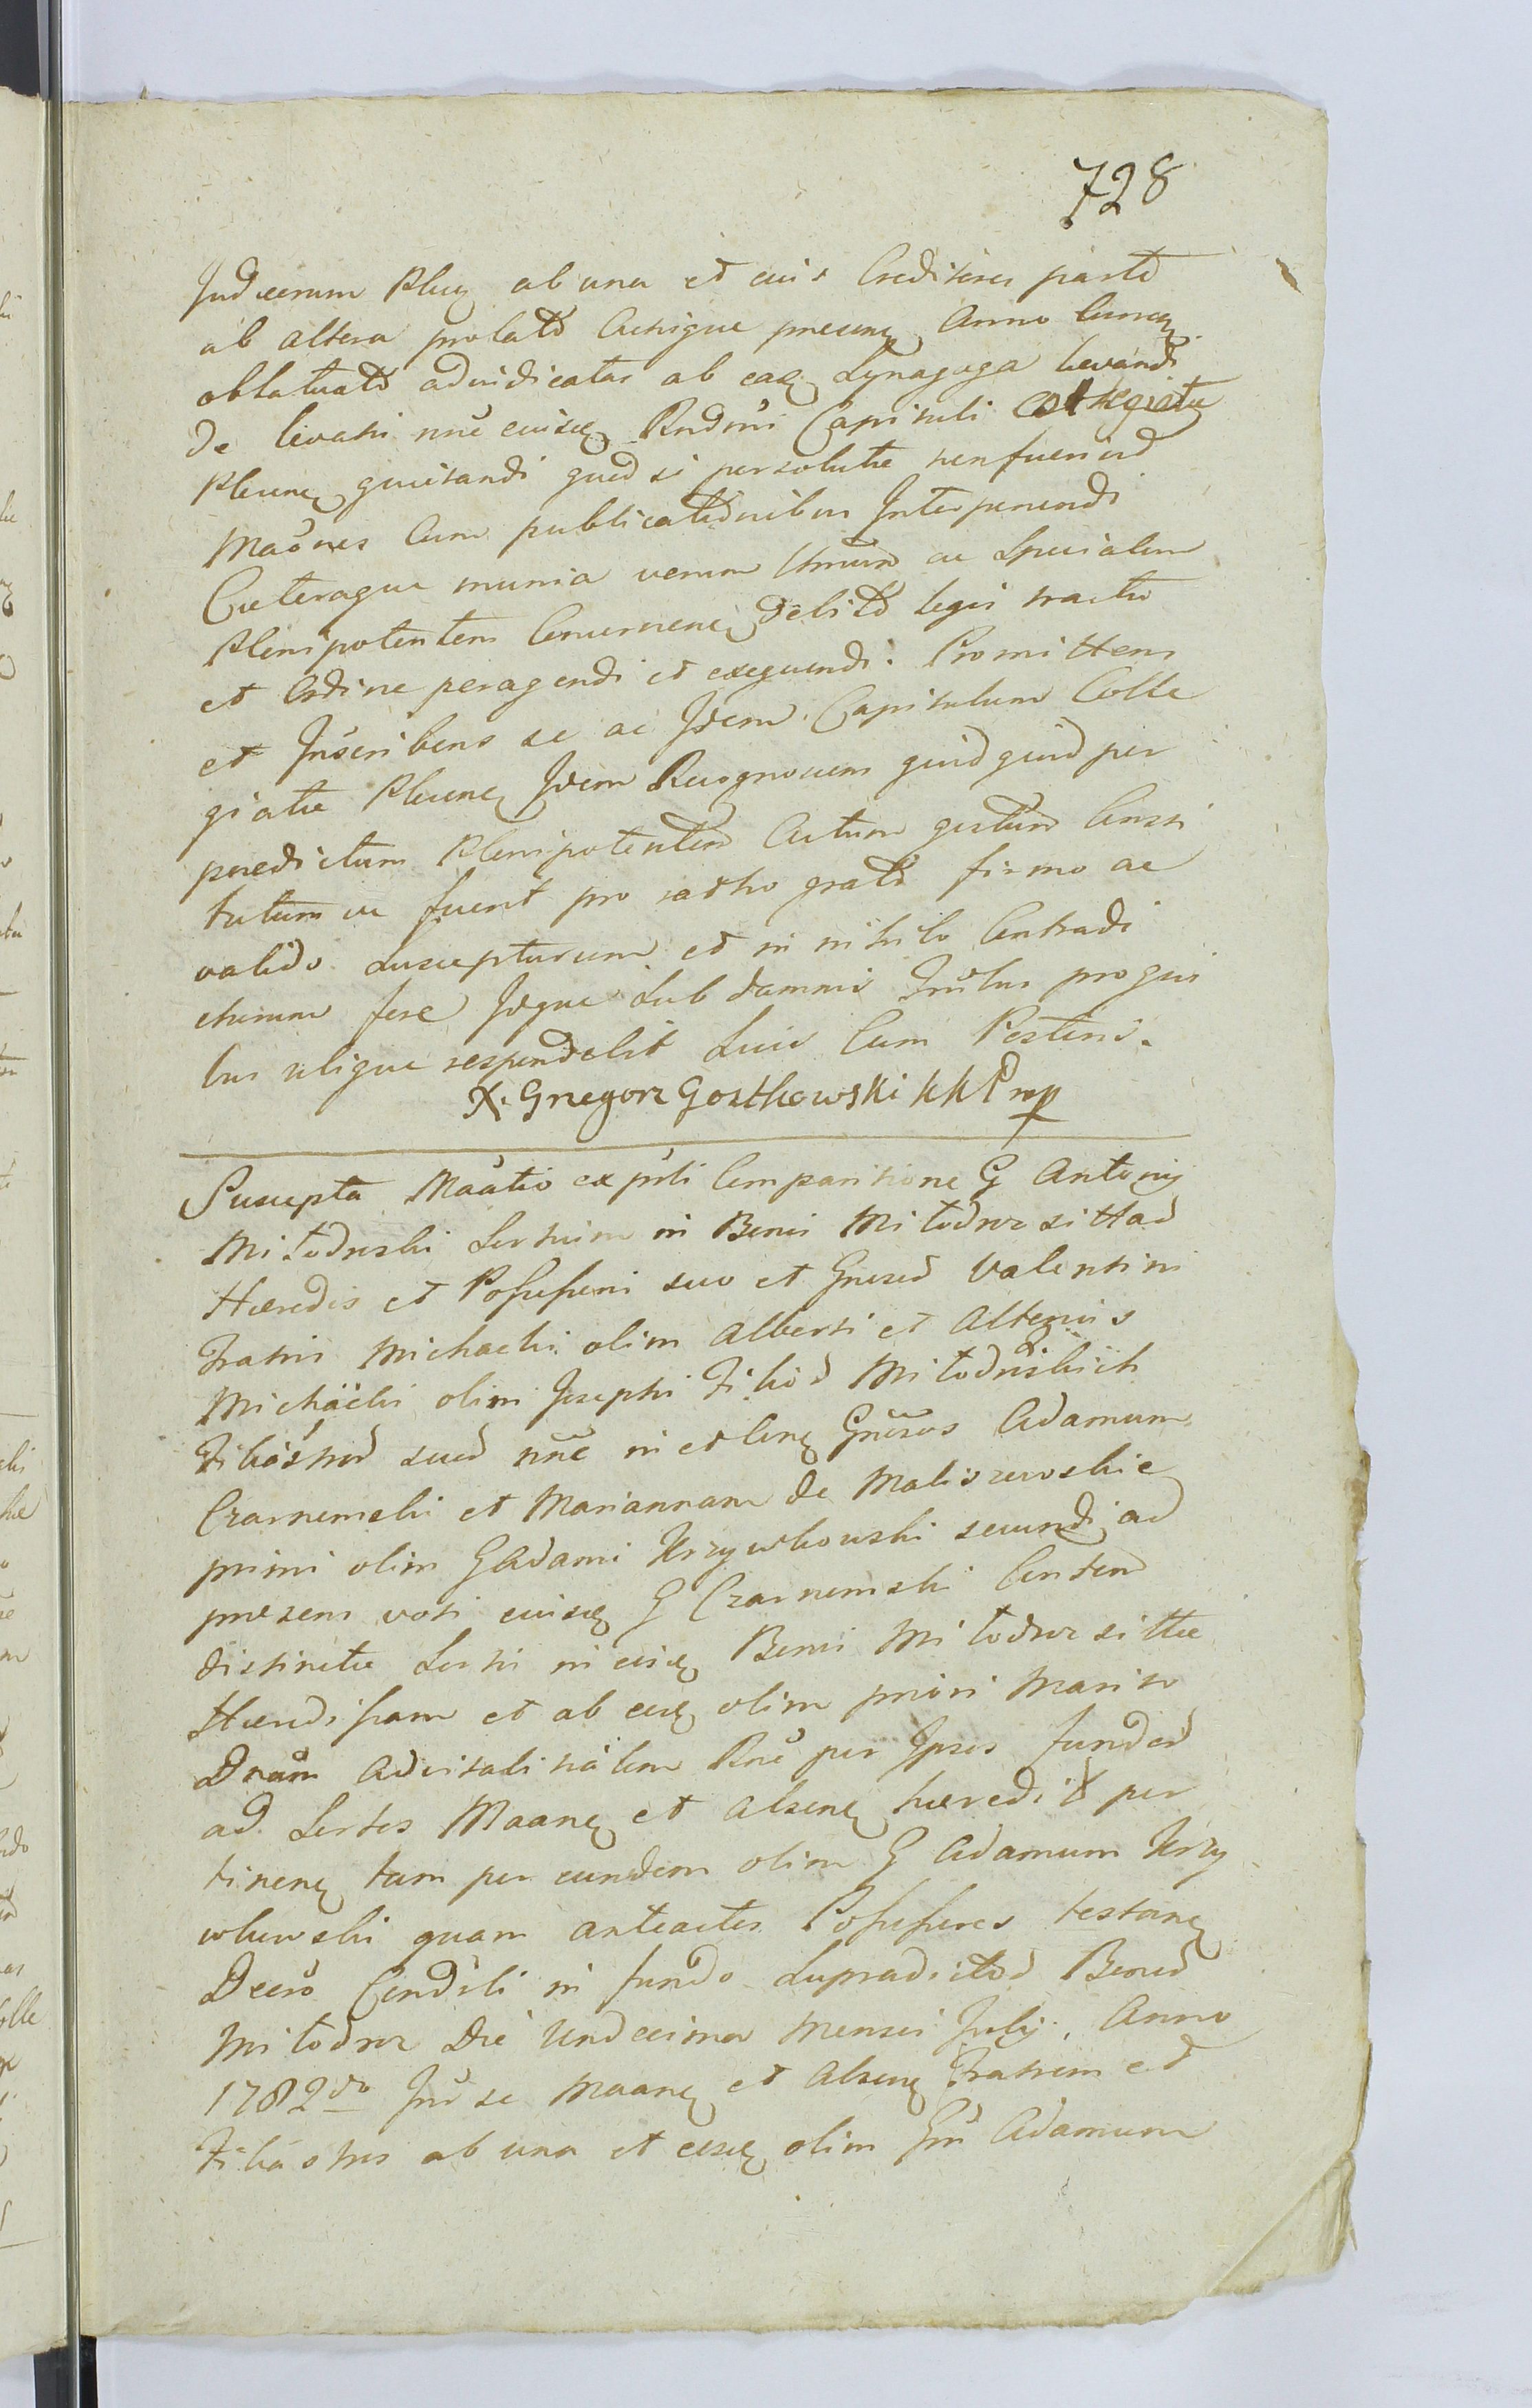 728
Judaeorum Plocen ab una et eius Creditores parte
ab altera prolato Actisque praesen Anno Curren
oblatuato adiudicatas ab eaq Synagoga levandi
de levatis nne eiusq Rndmi Capituli Collegiatae
Plocen quietandi quod si persolutae non fuerint
Maones Cum publicationibus Interponendi
Caeteraque munia verum Unum ac Specialem
Plenipotentem Concernen debito legis tractu
et Ordine peragendi et exequendi. Promittens
et Inscribens se ac Idem Capitulum Colle
giatae Plocen Idem Recognoscens quidquid per
praedictum Plenipotentem Actum gestum Consti
tutum ve fuerit pro ratho grato firmo ac
valido Suscepturum et in nihilo Contradi
cturum fore Idque Sub damnis Trnlus pro qui
bus ubique respondebit Suis Cum Postens.
X. Gregorz Gostkowski kkP mp
Suscepta Maatio ex pnti Comparitione G Antonij
Miłodrwski Sortium in Bonis Miłodroz sittad
Haeredis et Possessoris suo et Gnrsod Valentini
Fratris Michaelis olim Alberti et Alterius
Michaelis olim Josephi Filiod Miłodrwskich
Filiastrod suod nne in et Con Gnrsos Adamum
Czarnomski et Mariannam de Maliszewskie
primi olim G Adami Krzywkowski secundi ad
praesens voti eiusq G Czarnomski Consten
distinctae Sortis in eisq Bonis Miłodroz sittae
Haeredissam et ab eoq olim priori Marito
Dnam Advitalitialem Rne per Ipsos fundod
ad Sortes Maanq et Alsenq haeredit per
tinenq tam per eundem olim G Adamum Krzy
wkowski quam anteactos Possessores testanq
Decro Condsli in fundo Supradictod Bonod
Miłodroz Die Undecima Mensis Julij Anno
1782do Inr se Maanq et Alsenq Fratrem et
Filiastros ab una et eosq olim Gn Adamum